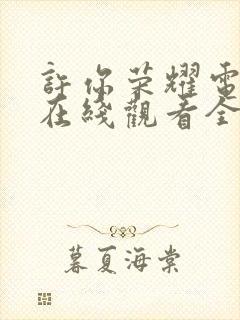 許你荣耀電
在綫觀看全
暮夏海棠